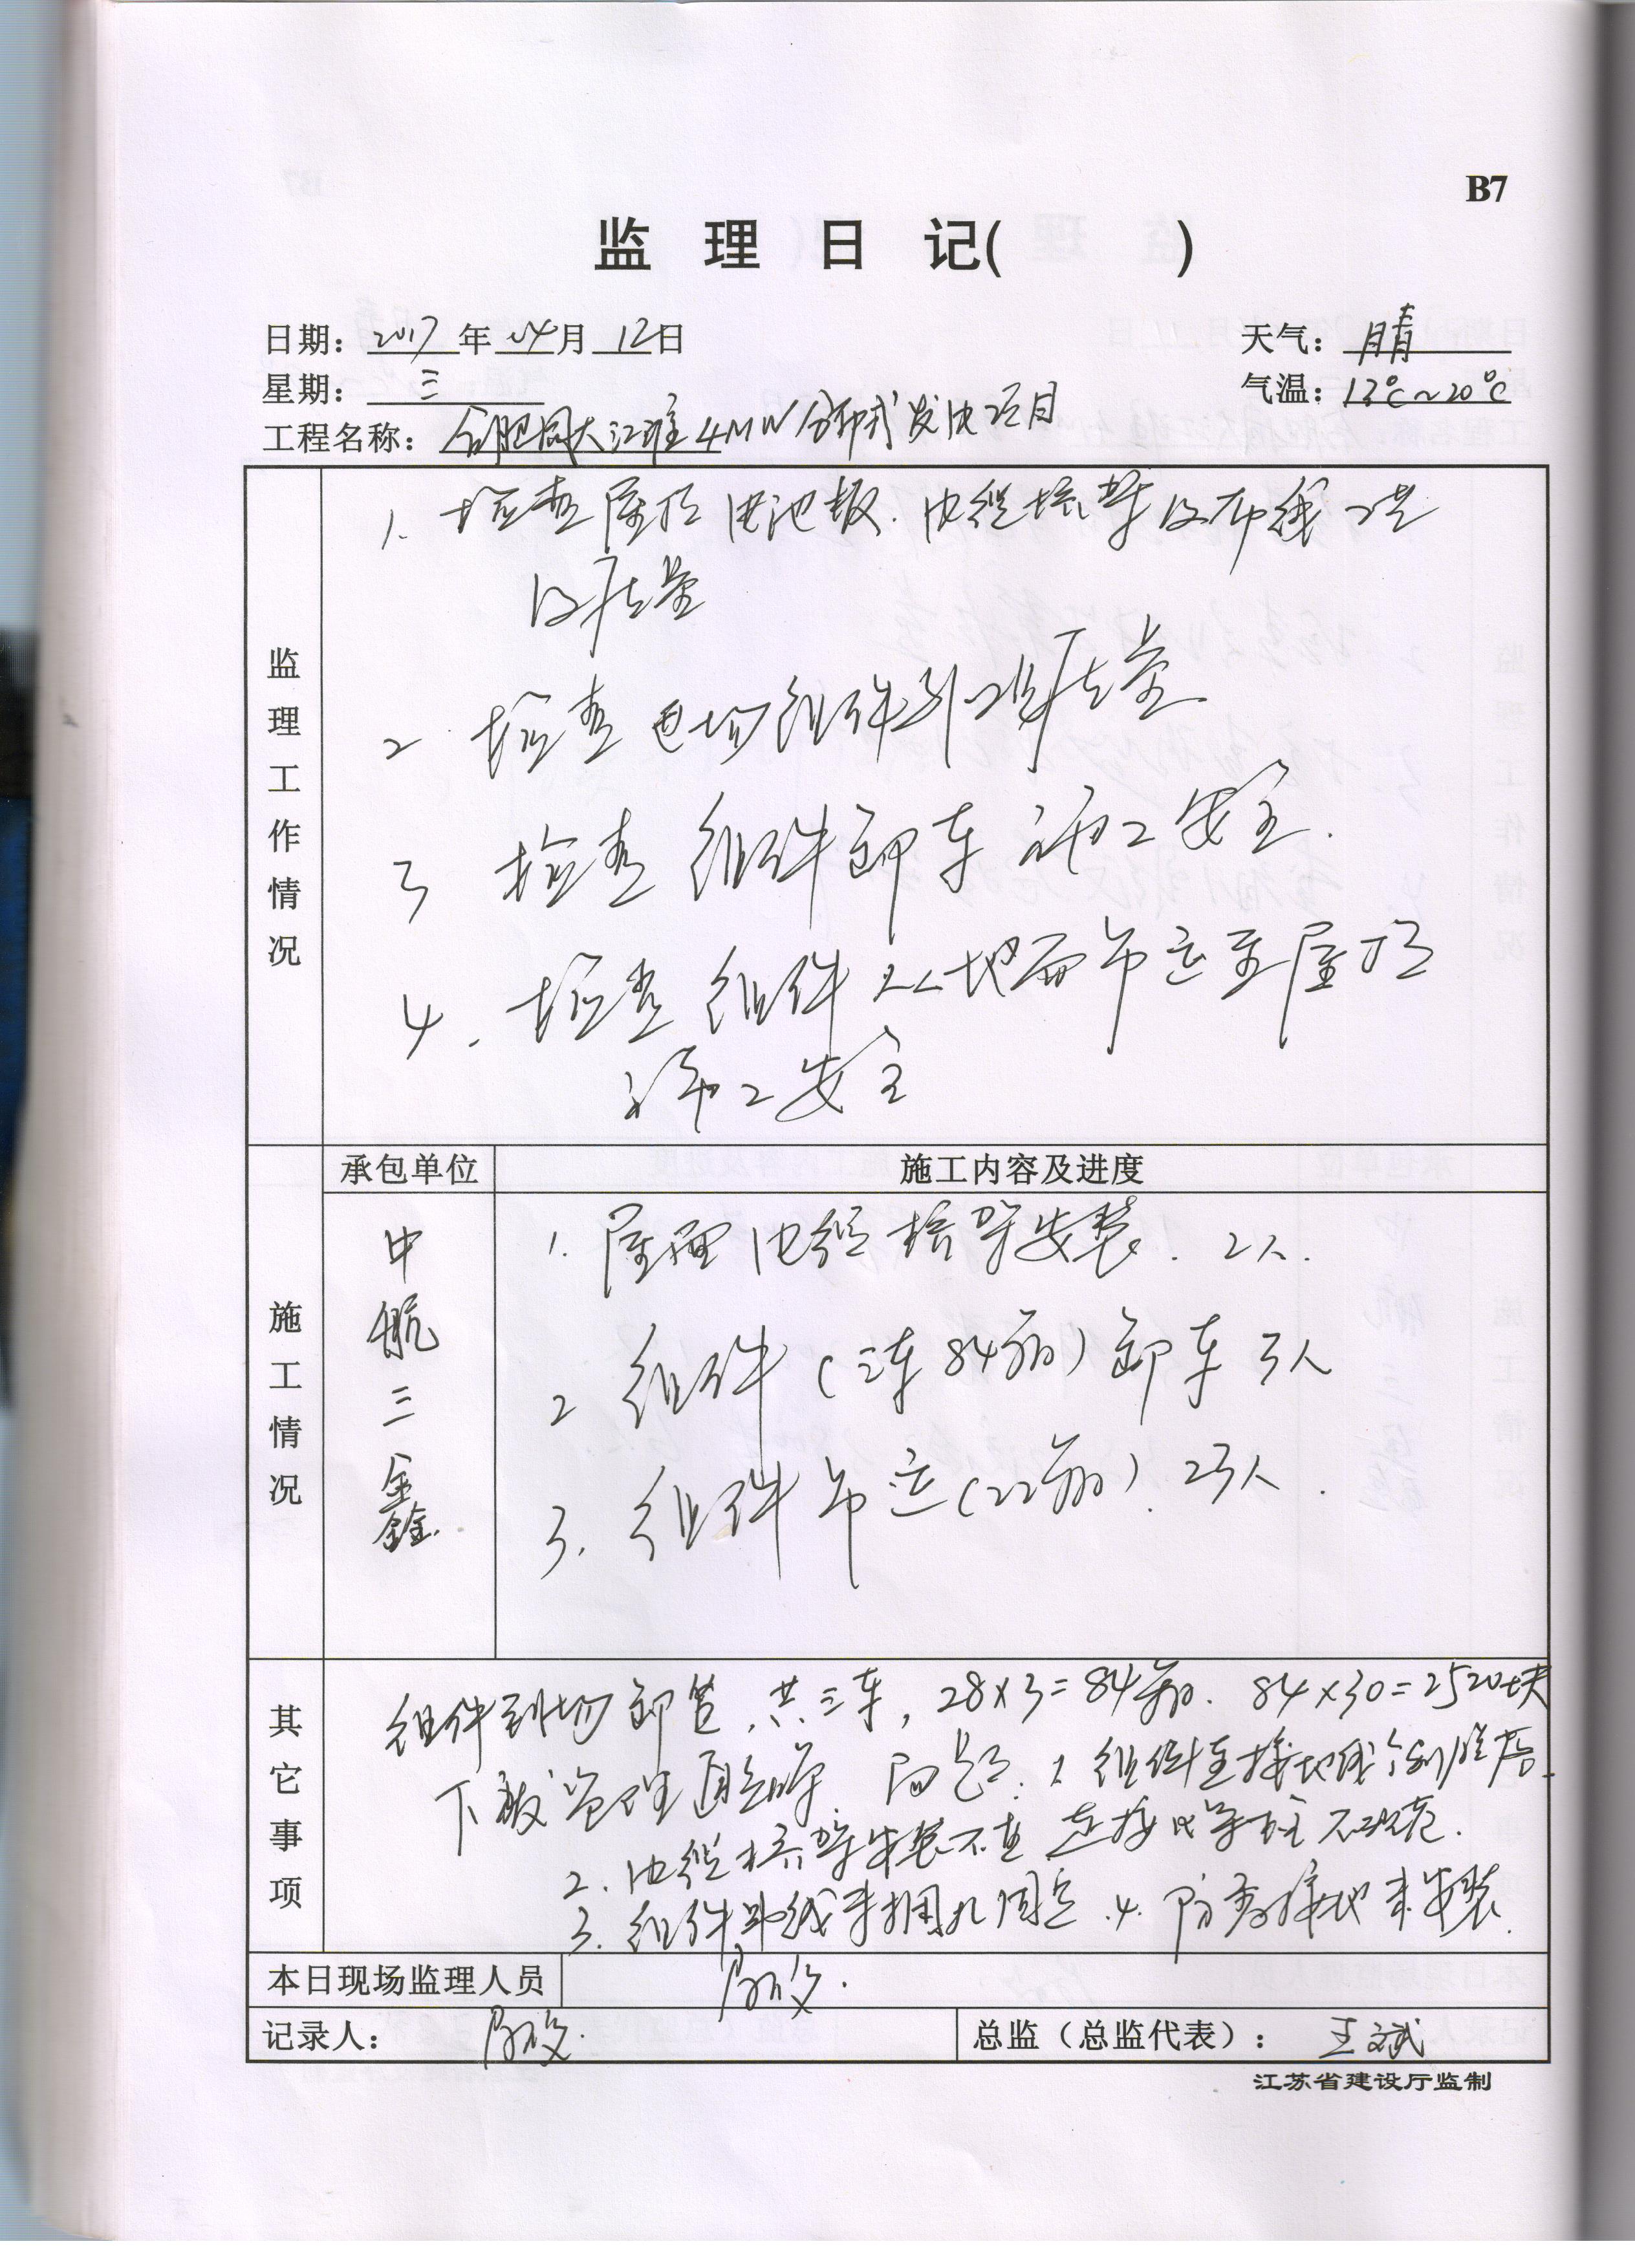 B7
监 理 日 记( )
日期：2017年04月12日
天气：晴
星期：三
气温：13℃~20℃
工程名称：合肥 大江淮4MW分布式发电项目
监理工作情况
1. 检查屋顶电池板、电缆桥架及布线工艺
及质量
2. 检查 场组件 质量
3 检查组件卸车施工安全.
4. 检查组件从地面吊运至屋顶
施工安全
承包单位
施工内容及进度
施工情况
中航三鑫
1. 屋面电缆桥架安装. 2人.
2 组件(三车84箱)卸车 3人
3. 组件吊运(22箱). 23人.
其它事项
组件到场卸 , 共三车, 28×3=84箱. 84×30=2520块
下 管理 问题. 1 组件 接地线
2. 电缆桥架安装不直 连接 不规范.
3. 组件 线未捆扎固定. 4. 防雷接地未安装.
本日现场监理人员
记录人：
总监（总监代表）： 王斌
江苏省建设厅监制